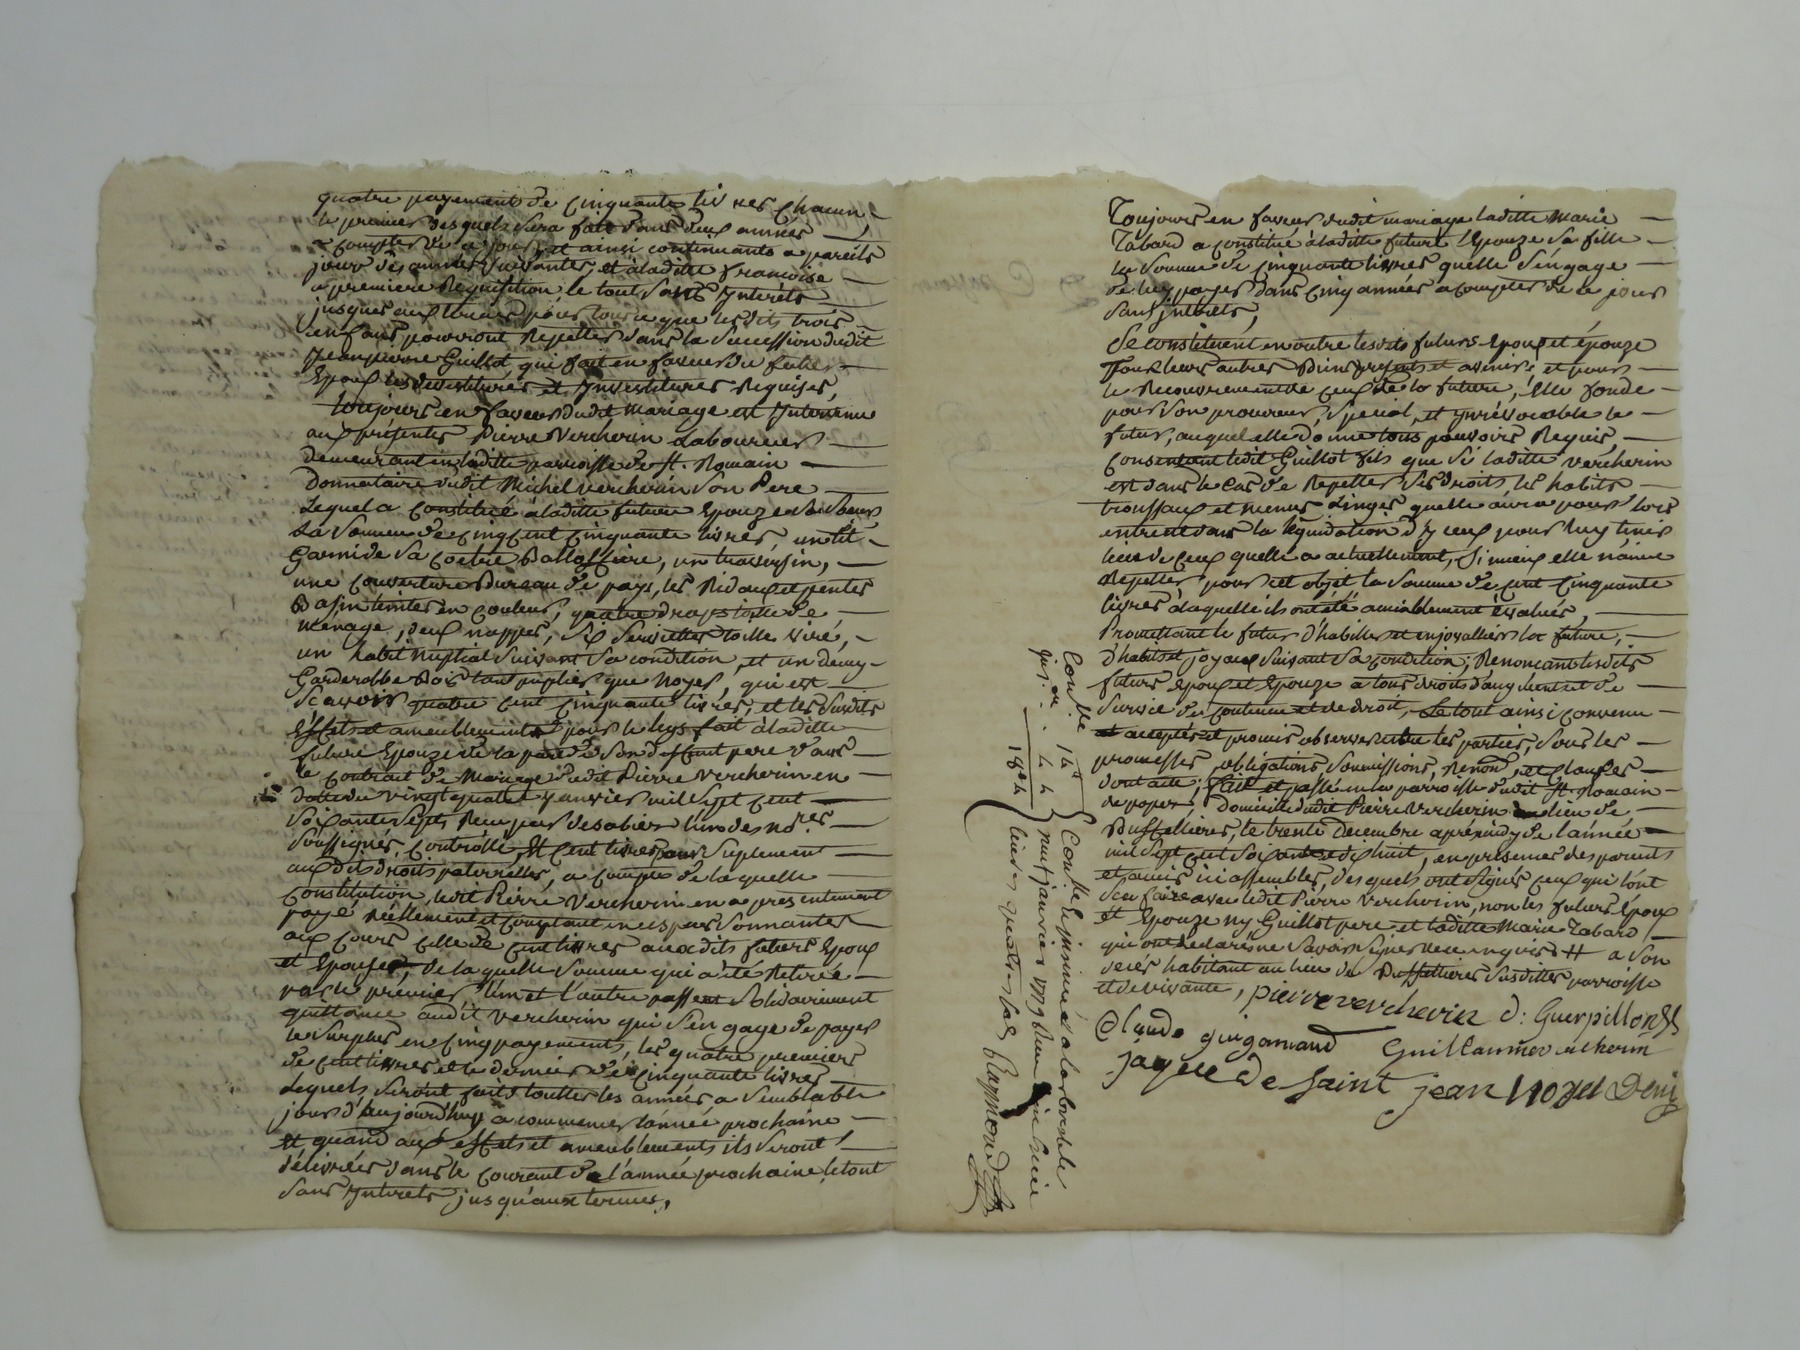 quatre payement de Cinquante livres Chacun,
le premier desquels sera fait dans deux années
a compter de ce jour, et ainsi continuants a pareils
jour des années suivantes, et a laditte françoise
a premiere Requisition le tout sans Interets
jusques aux termes pour tout ce que lesdits trois
enfans pourront Repetter dans la succession dudit
Jeanpierre Guillot qui fait en faveur du futur
Epoux les devestitures et Investitures Requises,
toujours en faveur dudit mariage est Intervenu
aux présentes Pierre Vercherin Laboureur
demeurant en laditte parroisse de St. Romain
Donnataire dudit Michel vercherin Son Pere
Lequel a Constitué à laditte future Epouze sa Soeur
la Somme de Cinq Cent Cinquante livres, un lit
Garni de Sa Coetre Balloffiere, un traversin,
une Couverture Bureau de pays, les Ridaux et pentes
Basin teintes en couleur, quatre draps toille de
menage, deux nappes, Six Serviettes toille
un habit Nuptial Suivant Sa condition, et un demy
Garderobbe Bois tant puplier que Noyer, qui est
Scavoir quatre Cent Cinquante livres, et les Susdits
Effets et ameublements pour le legs fait à laditte
future Epouze de la part de Son deffunt pere dans
le Contrait de Mariage dudit Pierre vercherin en
datte du vingt quatre Janvier mil Sept Cent
Soixante Sept, Reçu par desabier l'un des nores.
Soussignés, controllé, Et Cent livres pour Suplement
aux dits droits paternelles, a Compte de laquelle
Constitution, ledit Pierre Vercherin en a presentement
payé réellement et Comptant en especes Sonnantes
au Cours celle de Cent livres aux dits futurs Epoux
et Epouse, de laquelle Somme qui a été Retirée
par le premier, l'un et l'autre passent Solidairement
quittance audit Vercherin qui S'engage de payer
le Surplus en Cinq payements, les quatre premiers
de Cent livres et le dernier de Cinquante livres
Lequels Seront faits touttes les années a Semblable
jour d'aujourdhuy a commencer l'année prochaine
Et quand aux effets et ameublements ils Seront
délivrés dans le Courant de l'année prochaine, le tout
Sans Interets jusqu'aux termes,
Toujours en faveur dudit mariage laditte Marie
Tabard a constitué à laditte future Epouze Sa fille
la Somme de Cinquante livres quelle S'engage
de luy payer dans Cinq années a compter de ce jour
Sans Interets,
Se constituent en outre lesdits futurs Epoux et épouze
Tous leurs autres Biens presents et avenirs et pour
le Recouvrement de ceux de la future, Elle fonde
pour Son procureur, Special, et yrrévocable le
futur, auquel elle donne tous pouvoirs Requis,
Consentant ledit Guillot fils que Si laditte vercherin
est dans le cas de Repetter Ses droits, les habits
troussaux et menus Linges quelle aura pour lors
entrent dans la liquidation d'yceux pour luy tenir
lieu de ceux quelle a actuellement, Si mieux elle n'aime
Repetter pour cet objet la Somme de cent Cinquante
livres à laquelle ils ont été amiablement Evalués,
Promettant le futur d'habiller et enjoyallier la future,
d'habits et joyaux Suivant Sa condition; Renoncant lesdits
futurs epoux et Epouze a tous droits d'augment et de
Survie de Coutume et de droit, Le tout ainsi convenu
accepté et promis observer entre les parties, Sous les
promesses, obligations, Soumissions, Renonc. et Clauses
dont acte; fait et passé en la parroisse dudit St. Romain
de popey, Domicille dudit Pierre Vercherin lieu de
Buffellieres, le trente Decembre aprèmidy de l'année
mil Sept Cent Soixante dix huit, en présences des parents
et amis ici assemblés, desquels ont Signés ceux qui l'ont
Sceu faire avec ledit Pierre Vercherin, non les futurs Epoux
et Epouze ny Guillot pere et laditte Marie Tabard
qui ont déclaré ne Savoir Signer de ce enquis # a Son
decés habitant au lieu de Buffellieres Susditte parroisse
et de vivante,
pierre vercherin D: Guerpillon
Claude guigamand Guillaume vercherin
jaques de Saint jean Noyel Deny
Conlle 14
18# 4
Conlle Et Insinué a larbresle
neuf janvier 1779
livres quatre sols
Raymond